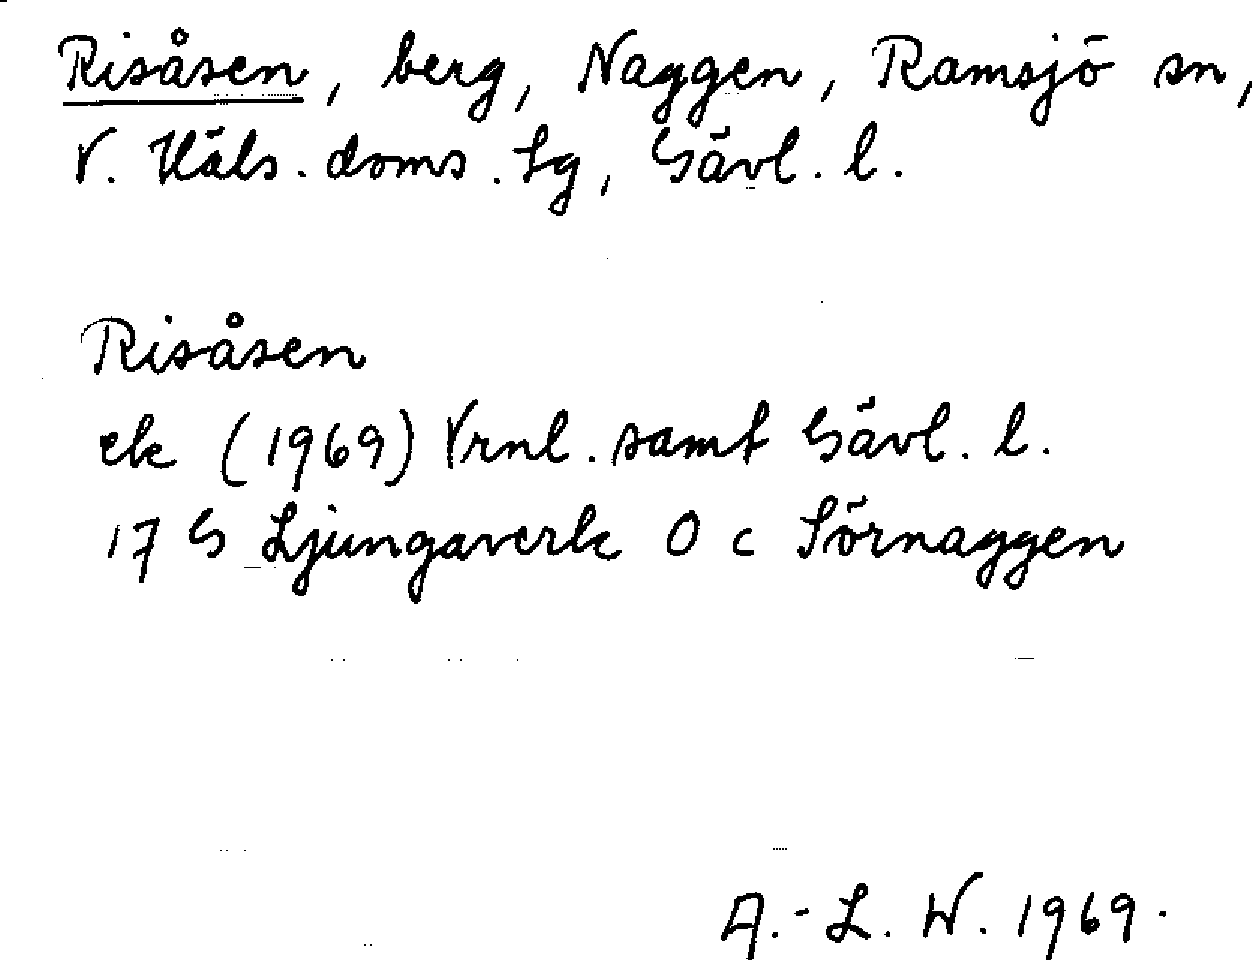 Risåsen, berg, Naggen, Ramsjö sn,
V. Häls. doms. tg, Gävl. l.
Risåsen
ek (1969) Vrnl. samt Gävl. l.
17 G Ljungaverk O c Sörnaggen
A.-L. W. 1969.